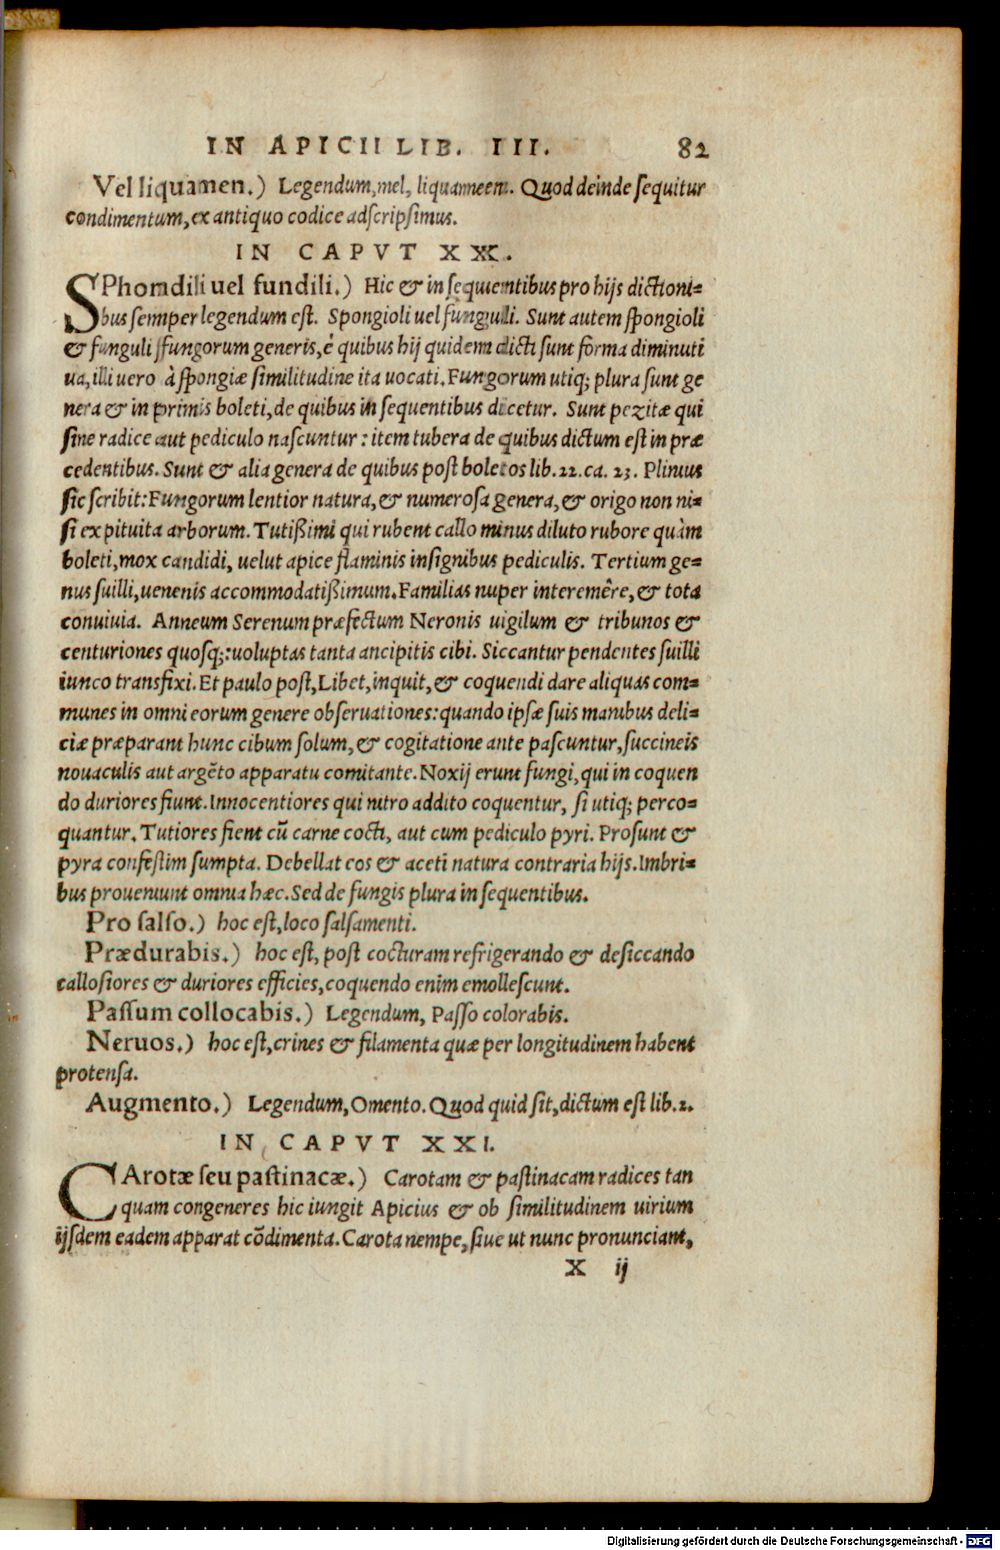 IN APICII LIB. III. 82
Vel liquamen.) Legendum, mel, liquamen. Quod deinde sequitur
condimentum, ex antiquo codice adscripsimus.
IN CAPVT XX.
SPhondili uel fundili.) Hic & in sequentibus pro hijs dictioni=
bus semper legendum est. Spongioli uel funguli. Sunt autem spongioli
& funguli fungorum generis, è quibus hij quidem dicti sunt forma diminuti
ua, illi uero à spongiæ similitudine ita uocati. Fungorum utiq; plura sunt ge
nera & in primis boleti, de quibus in sequentibus dicetur. Sunt pezitæ qui
sine radice aut pediculo nascuntur: item tubera de quibus dictum est in præ
cedentibus. Sunt & alia genera de quibus post boletos lib. 22. ca. 23. Plinius
sic scribit: Fungorum lentior natura, & numerosa genera, & origo non ni=
si ex pituita arborum. Tutißimi qui rubent callo minus diluto rubore quàm
boleti, mox candidi, uelut apice flaminis insignibus pediculis. Tertium ge=
nus suilli, uenenis accommodatißimum. Familias nuper interemêre, & tota
conuiuia. Anneum Serenum præfectum Neronis uigilum & tribunos &
centuriones quosq;: uoluptas tanta ancipitis cibi. Siccantur pendentes suilli
iunco transfixi. Et paulo post, Libet, inquit, & coquendi dare aliquas com=
munes in omni eorum genere obseruationes: quando ipsæ suis manibus deli=
ciæ præparant hunc cibum solum, & cogitatione ante pascuntur, succineis
nouaculis aut argēto apparatu comitante. Noxij erunt fungi, qui in coquen
do duriores fiunt. Innocentiores qui nitro addito coquentur, si utiq; perco=
quantur. Tutiores fient cū carne cocti, aut cum pediculo pyri. Prosunt &
pyra confestim sumpta. Debellat eos & aceti natura contraria hijs. Imbri=
bus proueniunt omnia hæc. Sed de fungis plura in sequentibus.
Pro salso.) hoc est, loco salsamenti.
Prædurabis.) hoc est, post cocturam refrigerando & desiccando
callosiores & duriores efficies, coquendo enim emollescunt.
Passum collocabis.) Legendum, Passo colorabis.
Neruos.) hoc est, crines & filamenta quæ per longitudinem habent
protensa.
Augmento.) Legendum, Omento. Quod quid sit, dictum est lib. 2.
IN CAPVT XXI.
CArotæ seu pastinacæ.) Carotam & pastinacam radices tan
quam congeneres hic iungit Apicius & ob similitudinem uirium
ijsdem eadem apparat cōdimenta. Carota nempe, siue ut nunc pronunciant,
X ij
Digitalisierung gefördert durch die Deutsche Forschungsgemeinschaft - DFG